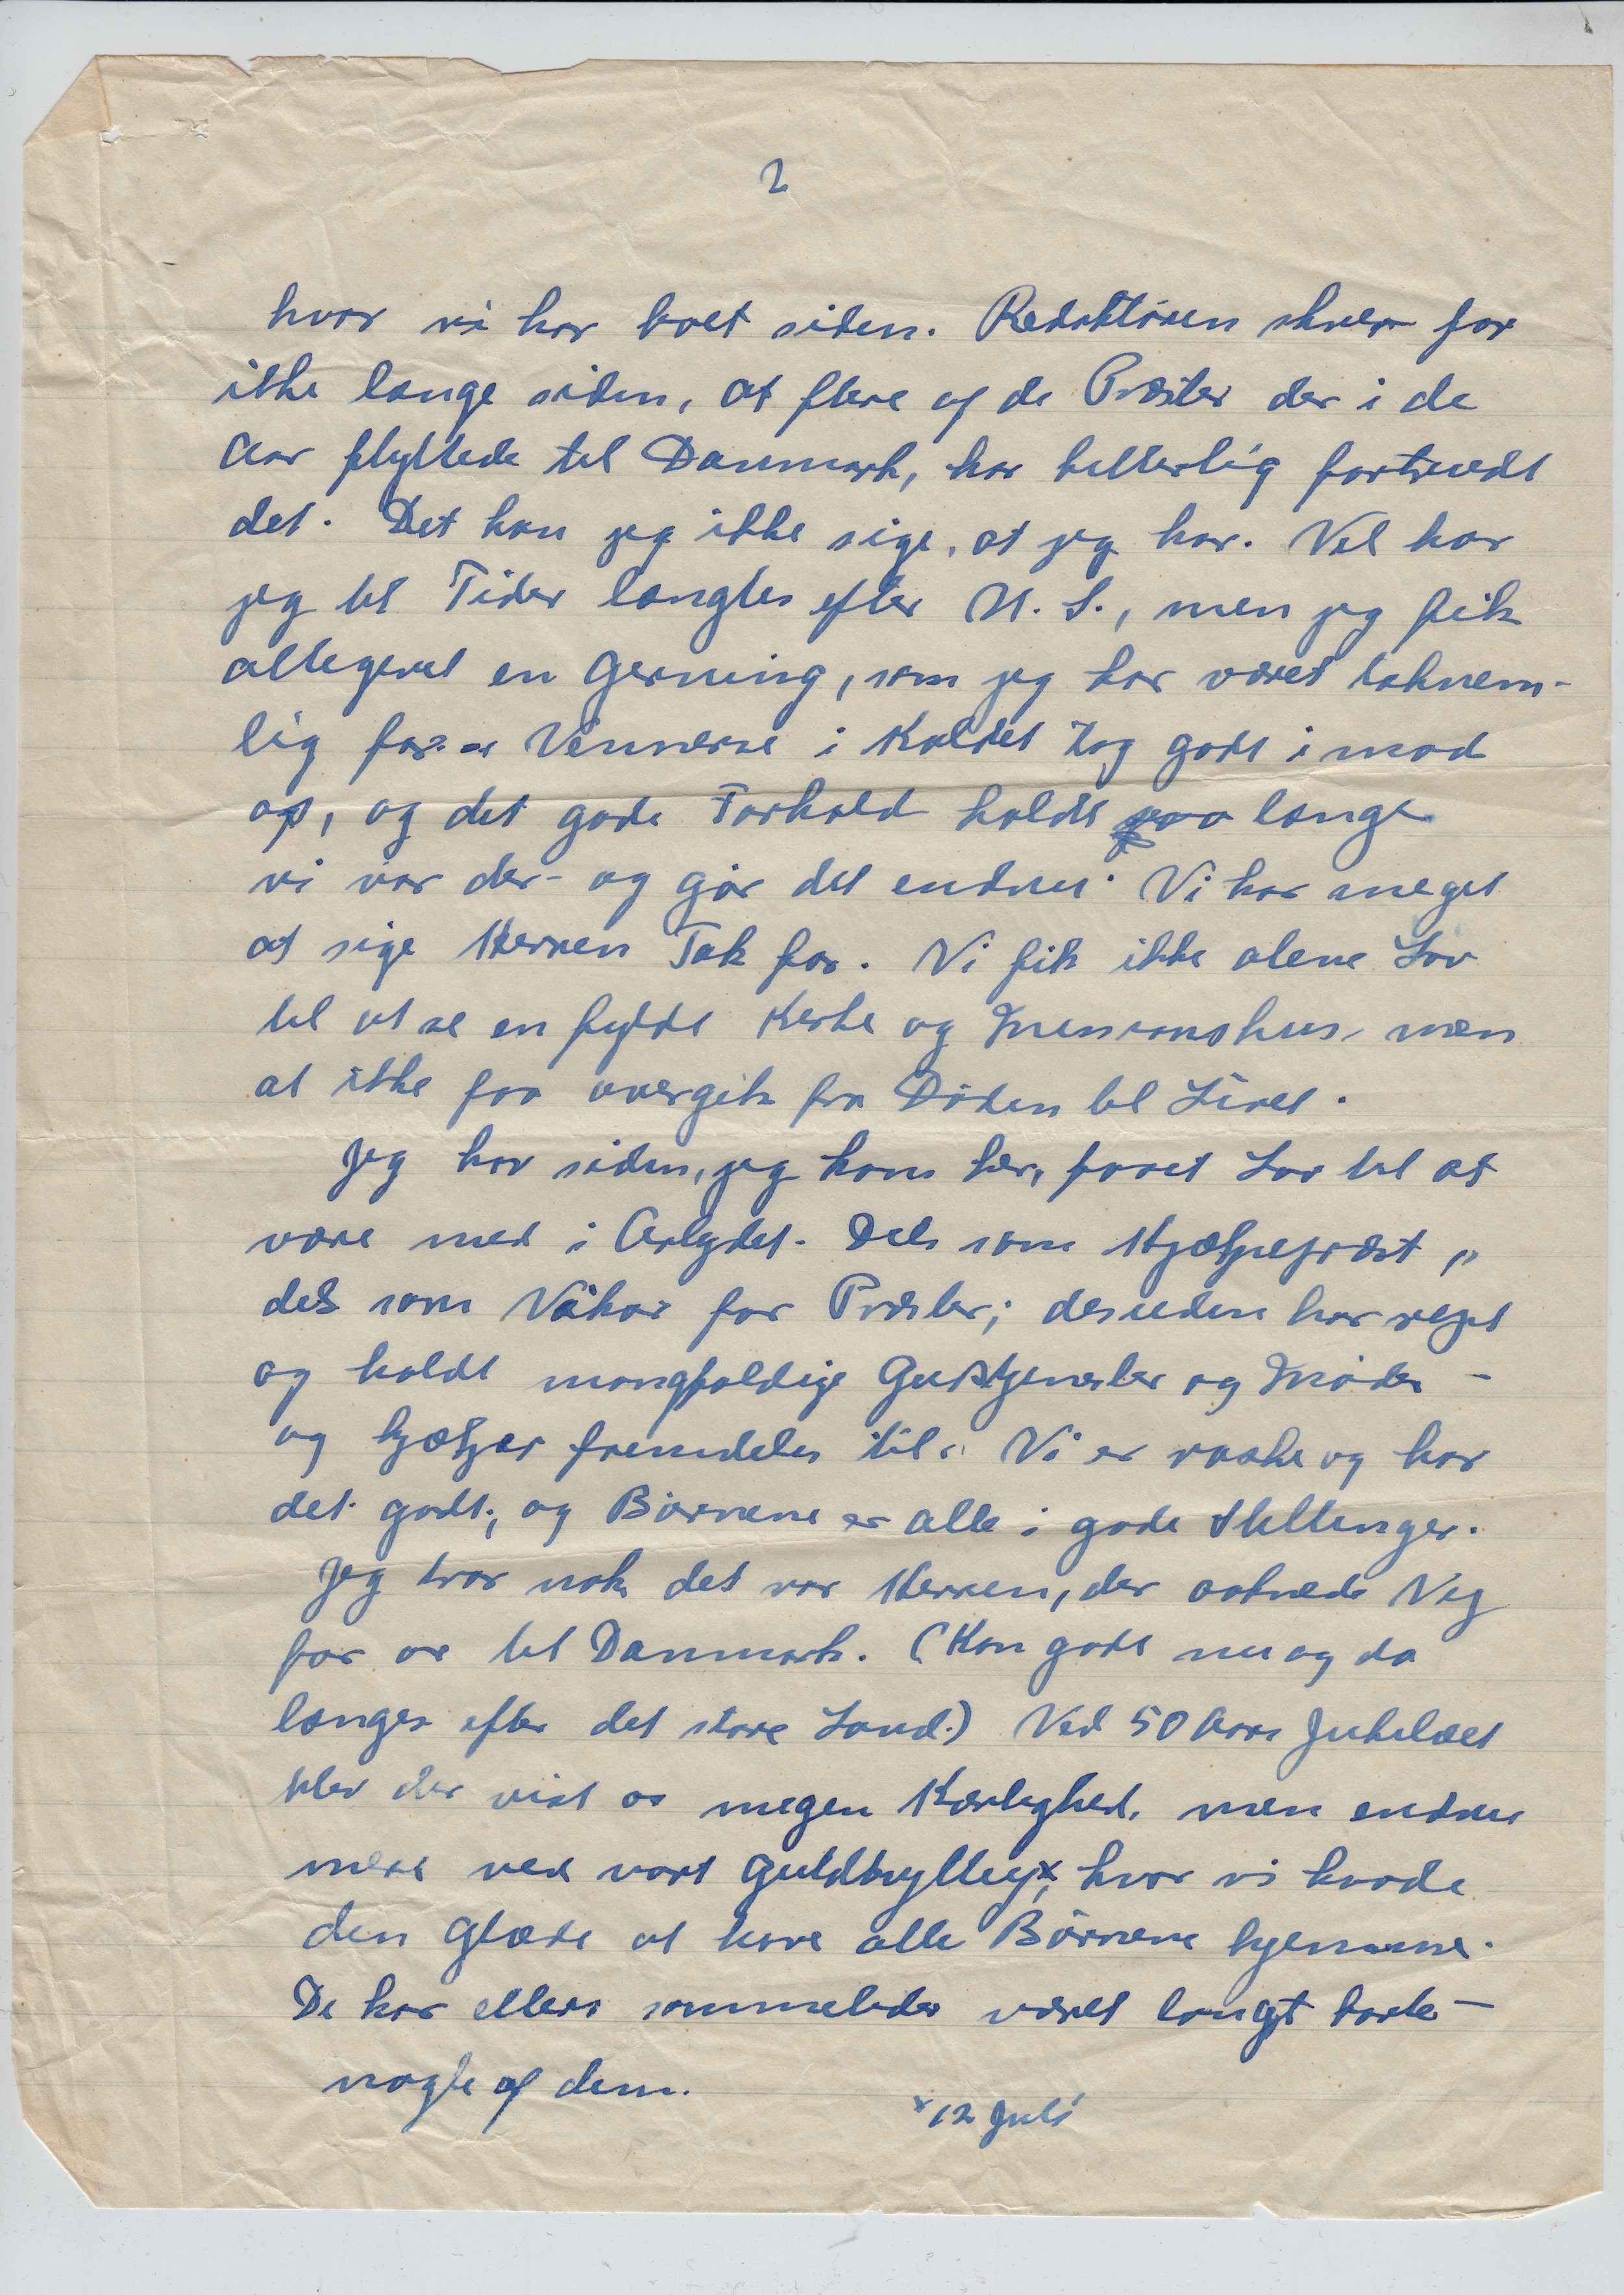 2
hvor vi har boet siden. Redaktören skrev for
ikke længe siden, at flere af de Præster der i de
Aar flyttede til Danmark, har bitterlig fortrudt
det. Det kan jeg ikke sige, at jeg har. Vel har
jeg til Tider længtes efter U. S., men jeg fik
alligevel en Gerning, som jeg har været taknem-
lig for. Vennerne i Kaldet tog godt imod
os, og det gode Forhold holdt saa længe
vi var der - og gör det endnu. Vi har meget
at sige Herren Tak for. Vi fik ikke alene Lov
til at se en fyldt Kirke og Missionshus, men
at ikke faa overgik fra Döden til Livet.
Jeg har siden, jeg kom her, faaet Lov til at
være med i Arbejdet. Dels som Hjælpepræst,
dels som Vikar for Præster; desuden har rejst
og holdt mangfoldige Gudstjenester og Möder -
og hjælper fremdeles til. Vi er raske og har
det godt, og Börnene er alle i gode Stillinger.
Jeg tror nok det var Herren, der aabnede Vej
for os til Danmark. (Kan godt nu og da
længes efter det store Land.) Ved 50 Aars Jubilæet
blev der vist os megen Kærlighed, men endnu
mere ved vort Guldbryllup x, hvor vi havde
den Glæde at have alle Börnene hjemme.
De har ellers sommetider været langt borte -
nogle af dem.
x 12 Juli